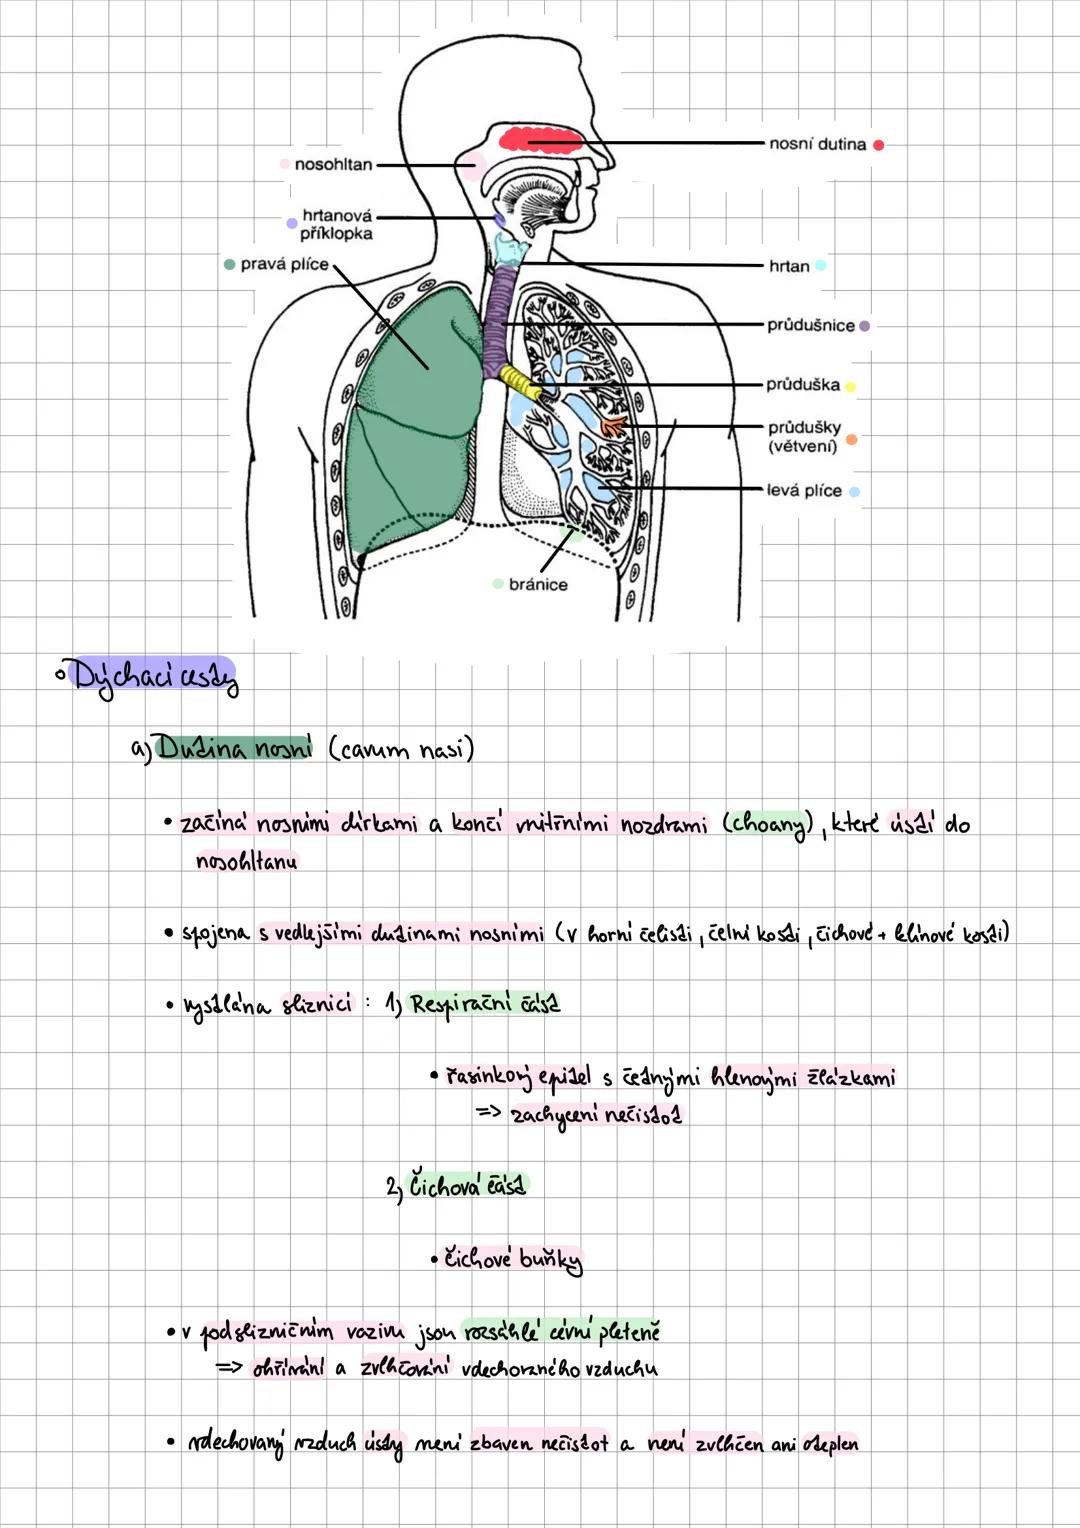 nosní dutina
nosohltan
hrtanová
příklopka
pravá plíce
hrtan
průdušnice
průduška
průdušky
(větvení)
levá plíce
bránice
Dýchací cesty
a) Dutina nosní (cavum nasi)
• začíná nosními dírkami a končí vnitřními nozdrami (choany), které ústí do
nosohltanu
• spojena s vedlejšími dutinami nosními (v horní čelisti, čelní kosti, čichové + klínové kosti)
• vystlána sliznicí : 1) Respirační část
• řasinkový epitel s četnými hlenovými žlázkami
=> zachycení nečistot
2) Čichová část
• čichové buňky
• v podslizničním vazivu jsou rozsáhlé cévní pleteně
=> ohřívání a zvlhčování vdechovaného vzduchu
• vdechovaný vzduch ústy není zbaven nečistot a není zvlhčen ani oteplen